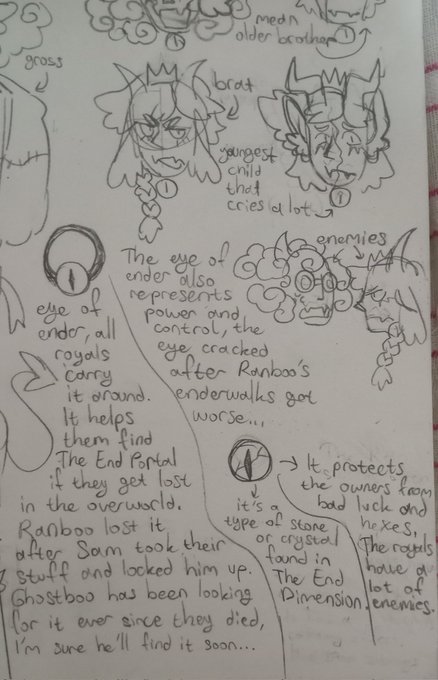 mean
older brother
gross
brat
youngest
child
that
cries a lot
enemies
eye of
ender, all
royals
carry
it around.
It helps
them find
The End Portal
if they get lost
in the overworld.
Ranboo lost it
after Sam took their
stuff and locked him up.
Ghostboo has been looking
for it ever since they died,
I'm sure he'll find it soon...
The eye of
ender also
represents
power and
control, the
eye cracked
after Ranboo's
enderwalks got
worse...
it's a
type of stone
or crystal
found in
The End
Dimension.
It protects
the owners from
bad luck and
hexes,
The royals
have a
lot of
enemies.